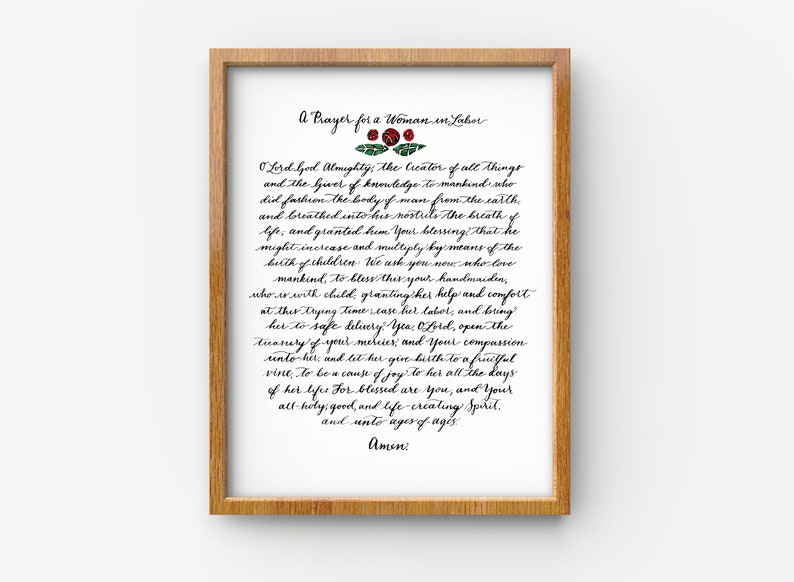 A Prayer for a Woman in Labor
O Lord God Almighty, the Creator of all things
and the Giver of knowledge to mankind, who
did fashion the body of man from the earth,
and breathed into his nostrils the breath of
life, and granted him Your blessing, that he
might increase and multiply by means of the
birth of children: We ask you now, who love
mankind, to bless this your handmaiden,
who is with child, granting her help and comfort
at this trying time; ease her labor, and bring
her to safe delivery. Yea, O Lord, open the
treasury of your mercies, and Your compassion
unto her, and let her give birth to a fruitful
vine, to be a cause of joy to her all the days
of her life: For blessed are You, and Your
all-holy, good, and life-creating Spirit,
and unto ages of ages.
Amen.